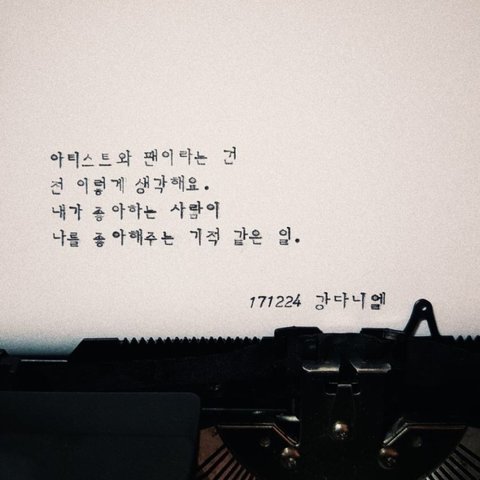 아티스트와 팬이라는 건
전 이렇게 생각해요.
내가 좋아하는 사람이
나를 좋아해주는 기적 같은 일.
171224 강다니엘